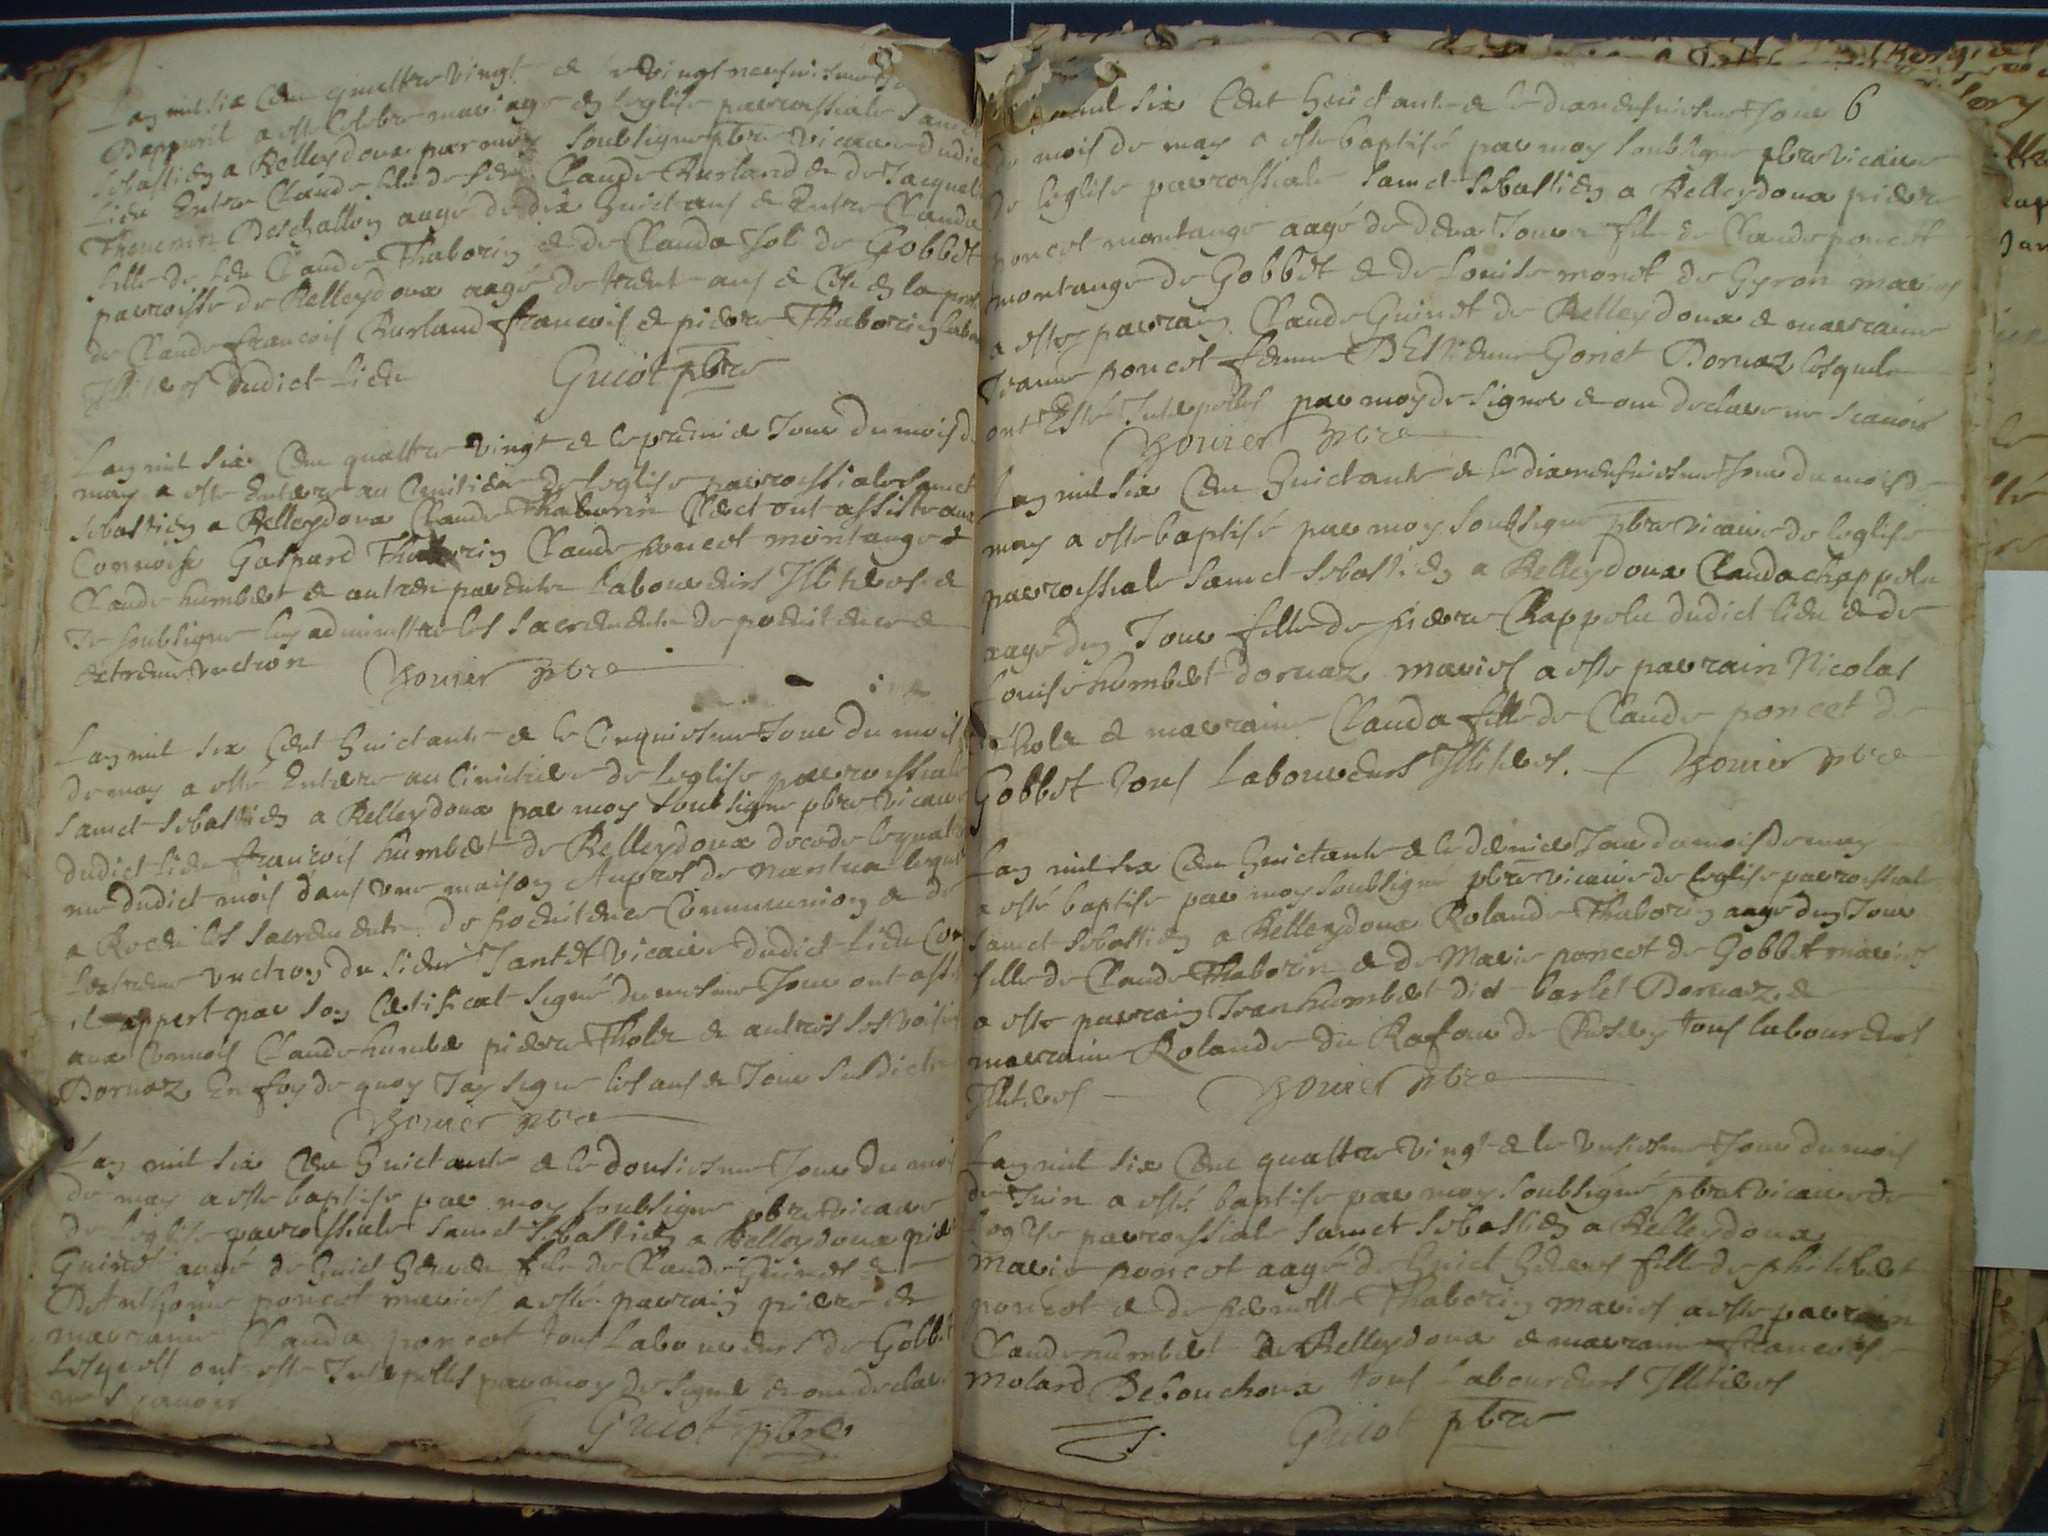 Lan mil six Cens quattre vingt & le vingt neufuiesme
Dappuril a esté Celebre mariage en leglise parrossiale Sainct
Sebastien a Belleydoux par moy soubsigne pbre vicaire dudict
lieu Entre Claude fils de feu Claude Burland & de Jacquel
Thouenin Deschallon aage de dix huict ans & Entre Clauda
fille de feu Claude Thaborin & de Clauda Sol de Gobbet
parroisse de Belleydoux aagé de trente ans & Ce en la pres
de Claude francois Burland francois & pierre Thaborin labou
Jllitres dudict lieu Guiot pbre
Lan mil six Cens quattre vingt & le premie Jour du mois de
may a esté Enterre au Cemitiere de leglise parrossiale sainct
sebastien a Belleydoux Claude Thaborin Cler ont assisté aux
Connois Gaspard Thaborin Claude poncet montange &
Claude humbert & autres parents laboureurs Jllitres &
Je soubsigne luy administre les sacrements de penitence &
extreme unction Bouuier pbre
Lan mil six Cent huictante & le Cinquiesme Jour du mois
de may a esté Enterre au Cimitiere de leglise parrossiale
sainct Sebastien a Belleydoux par moy soubsigne pbre vicaire
dudict lieu francois humbert de Belleydoux decede le quatri
me dudict mois dans une maison Aupres de nantua lequel
a Receu les sacrements de penitence Communion & de
lextreme unction du sieur Jantet vicaire dudict lieu Com
il appert par son Certificat signé du mesme Jour ont assi
aux Connois Claude humbe pierre Thole & autres ses voisins
Doruaz En foy de quoy Jay signe les ans & Jour susdicts
Bouuier pbre
Lan mil six Cens huictante & le dousiesme Jour du mois
de may a esté baptise par moy soubsigne pbre vicaire
de leglise parrossiale sainct sebastien a Belleydoux pier
Guinet aagé de huict heures fils de Claude Guinet &
DAnthoine poncet maries a esté parrain pierre &
marraine Clauda poncet tous laboureurs de Gobbet
lesquels ont esté Jnterpelles par moy de signe & ont declare
ne scauoir Guiot pbre
6
mil six Cent huictante & le dixneufuiesme Jour
du mois de may a esté baptisé par moy soubsigne pbre vicaire
de leglise parrossiale sainct Sebastien a Belleydoux pierre
poncet montange aagé de deux Jours fils de Claude poncet
montange de Gobbet & de Louise monet de Gyron maries
a esté parrain Claude Guinet de Belleydoux & marraine
Jeanne poncet femme DEstienne Gonet Doruaz lesquels
ont Esté Jnterpelles par moy de signer & ont declare ne scauoir
Bouuier pbre
Lan mil six Cens huictante & le dixneufuiesme Jour du mois de
may a esté baptisé par moy soubsigne pbre vicaire de leglise
parrossiale sainct Sebastien a Belleydoux Clauda Chappelu
aage dun Jour fille de pierre Chappelu dudict lieu & de
Louise humbert doruaz maries a esté parrain Nicolas
Thole & marraine Clauda fille de Claude poncet de
Gobbet tous laboureurs Jllitres. Bouuier pbre
Lan mil six Cens huictante & le dernie Jour du mois de may
a esté baptise par moy soubsigné pbre vicaire de leglise parrossiale
sainct sebastien a Belleydoux Rolande Thaborin aage dun Jour
fille de Claude Thaborin & de Marie poncet de Gobbet maries
a esté parrain Jean humbert dict barlet Doruaz &
marraine Rolande du Rafour de Chesery tous laboureurs
Jllitres Bouuier pbre
Lan mil six Cens quattre vingt & le unsiesme Jour du mois
de Juin a esté baptise par moy soubsigné pbre vicaire de
leglise parrossiale sainct sebastien a Belleydoux
Marie poncet aagé de huict heures fille de philibert
poncet & de pernette Thaborin maries a esté parrain
Claude humbert de Belleydoux & marraine francoise
Molard Debouchoux tous laboureurs Jllitres
Guiot pbre